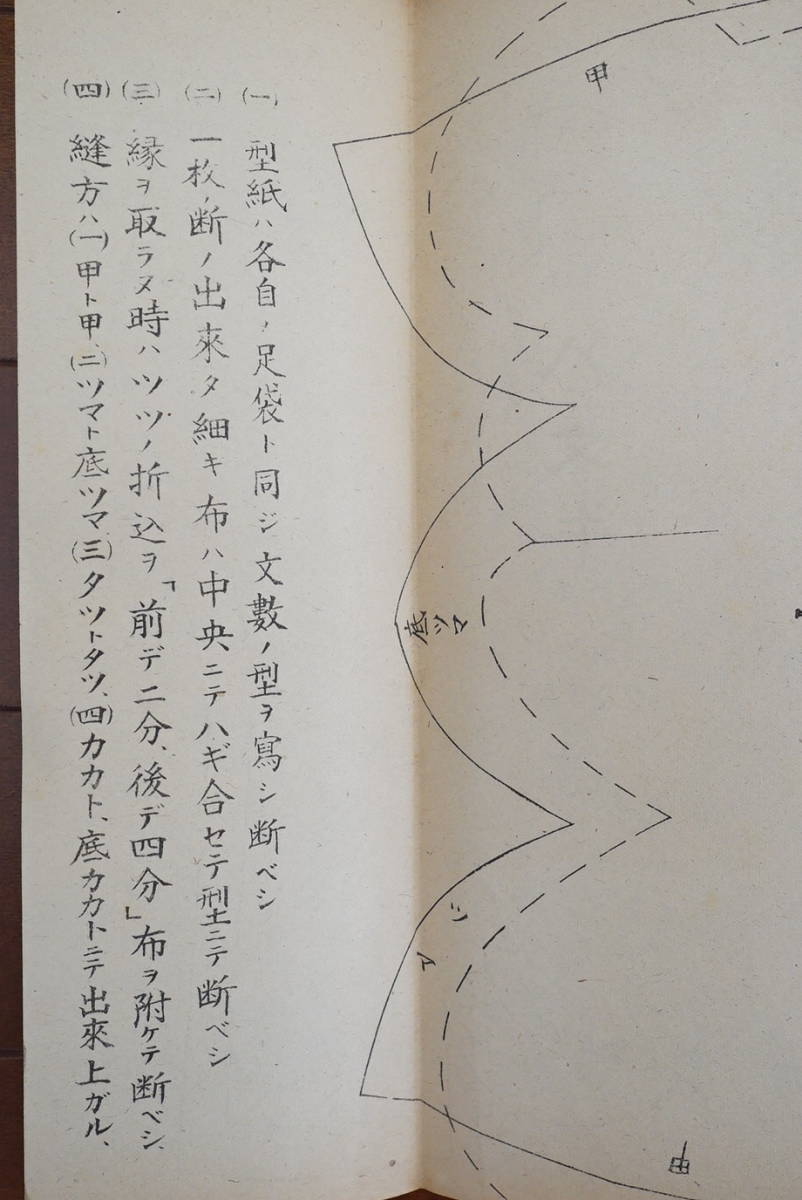 (一) 型紙ハ各自ノ足袋ト同ジ文數ノ型ヲ寫シ断ベシ
(二) 一枚ノ断ノ出來タ細キ布ハ中央ニテハギ合セテ型ニテ断ベシ
(三) 縁ヲ取ラヌ時ハツツノ折込ヲ「前デ二分、後デ四分」布ヲ附ケテ断ベシ、
(四) 縫方ハ(一)甲ト甲、(二)ツマト底ツマ(三)タツトタツ、(四)カカト、底カカトニテ出來上ガル、
甲
底ツマ
ツマ
甲